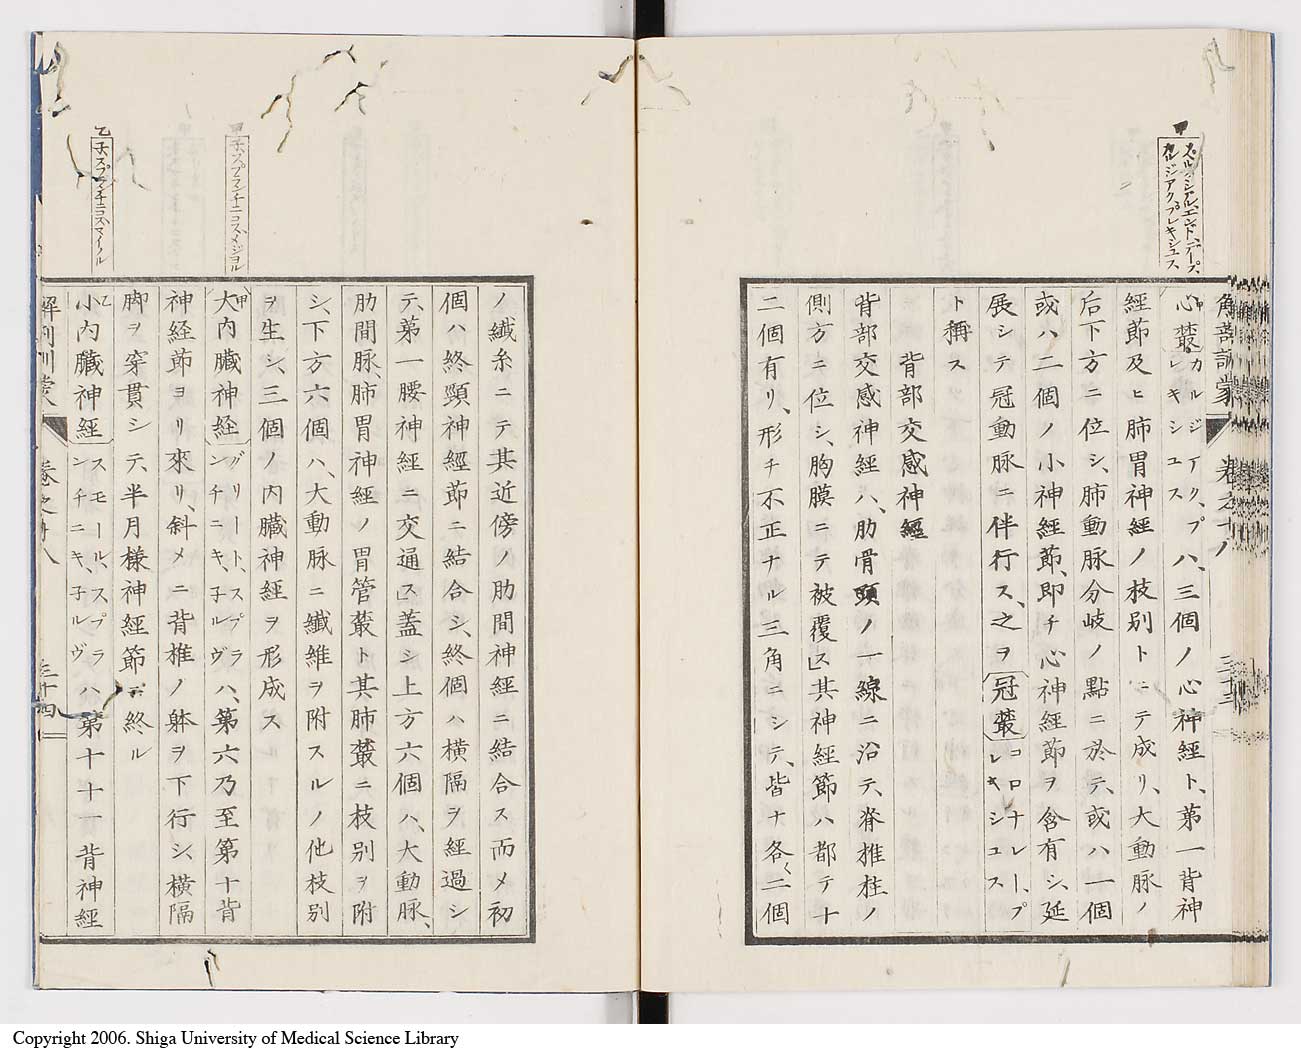 甲
スペルヒシアルエンドデープ
カルジアクプレキシュス
解剖訓蒙
卷之十八
三十三
心叢カルジアク、プレキシユスハ、三個ノ心神経ト、第一背神
經節及ヒ肺胃神經ノ枝別トニテ成リ、大動脈ノ
后下方ニ位シ、肺動脈分岐ノ點ニ於テ、或ハ一個
或ハ二個ノ小神經節、即チ心神經節ヲ含有シ、延
展シテ冠動脈ニ伴行ス、之ヲ冠叢コロナレー、プレキシユス
ト稱ス
背部交感神經
背部交感神經ハ、肋骨頭ノ一線ニ沿テ、脊椎柱ノ
側方ニ位シ、胸膜ニテ被覆ス其神經節ハ都テ十
二個有リ、形チ不正ナル三角ニシテ、皆ナ各〻二個
ノ纖糸ニテ其近傍ノ肋間神經ニ結合ス而メ初
個ハ終頸神經節ニ結合シ、終個ハ橫隔ヲ經過シ
テ、第一腰神經ニ交通ス蓋シ上方六個ハ、大動脈、
肋間脈、肺胃神經ノ胃管叢ト其肺叢ニ枝別ヲ附
シ、下方六個ハ、大動脈ニ纖維ヲ附スルノ他枝別
ヲ生シ、三個ノ内臓神經ヲ形成ス
甲
子、スプランチニコスメジヨル
大内臓神経グリート、スプランチニキ、子ルヴハ、第六乃至第十背
神経節ヨリ來リ、斜メニ背椎ノ躰ヲ下行シ、橫隔
脚ヲ穿貫シテ、半月樣神經節ニ終ル
乙
子、スプランチニコスマイノル
小内臓神經スモール、スプランチニキ、子ルヴハ第十十一背神經
解剖訓蒙
卷之十八
三十四
Copyright 2006. Shiga University of Medical Science Library